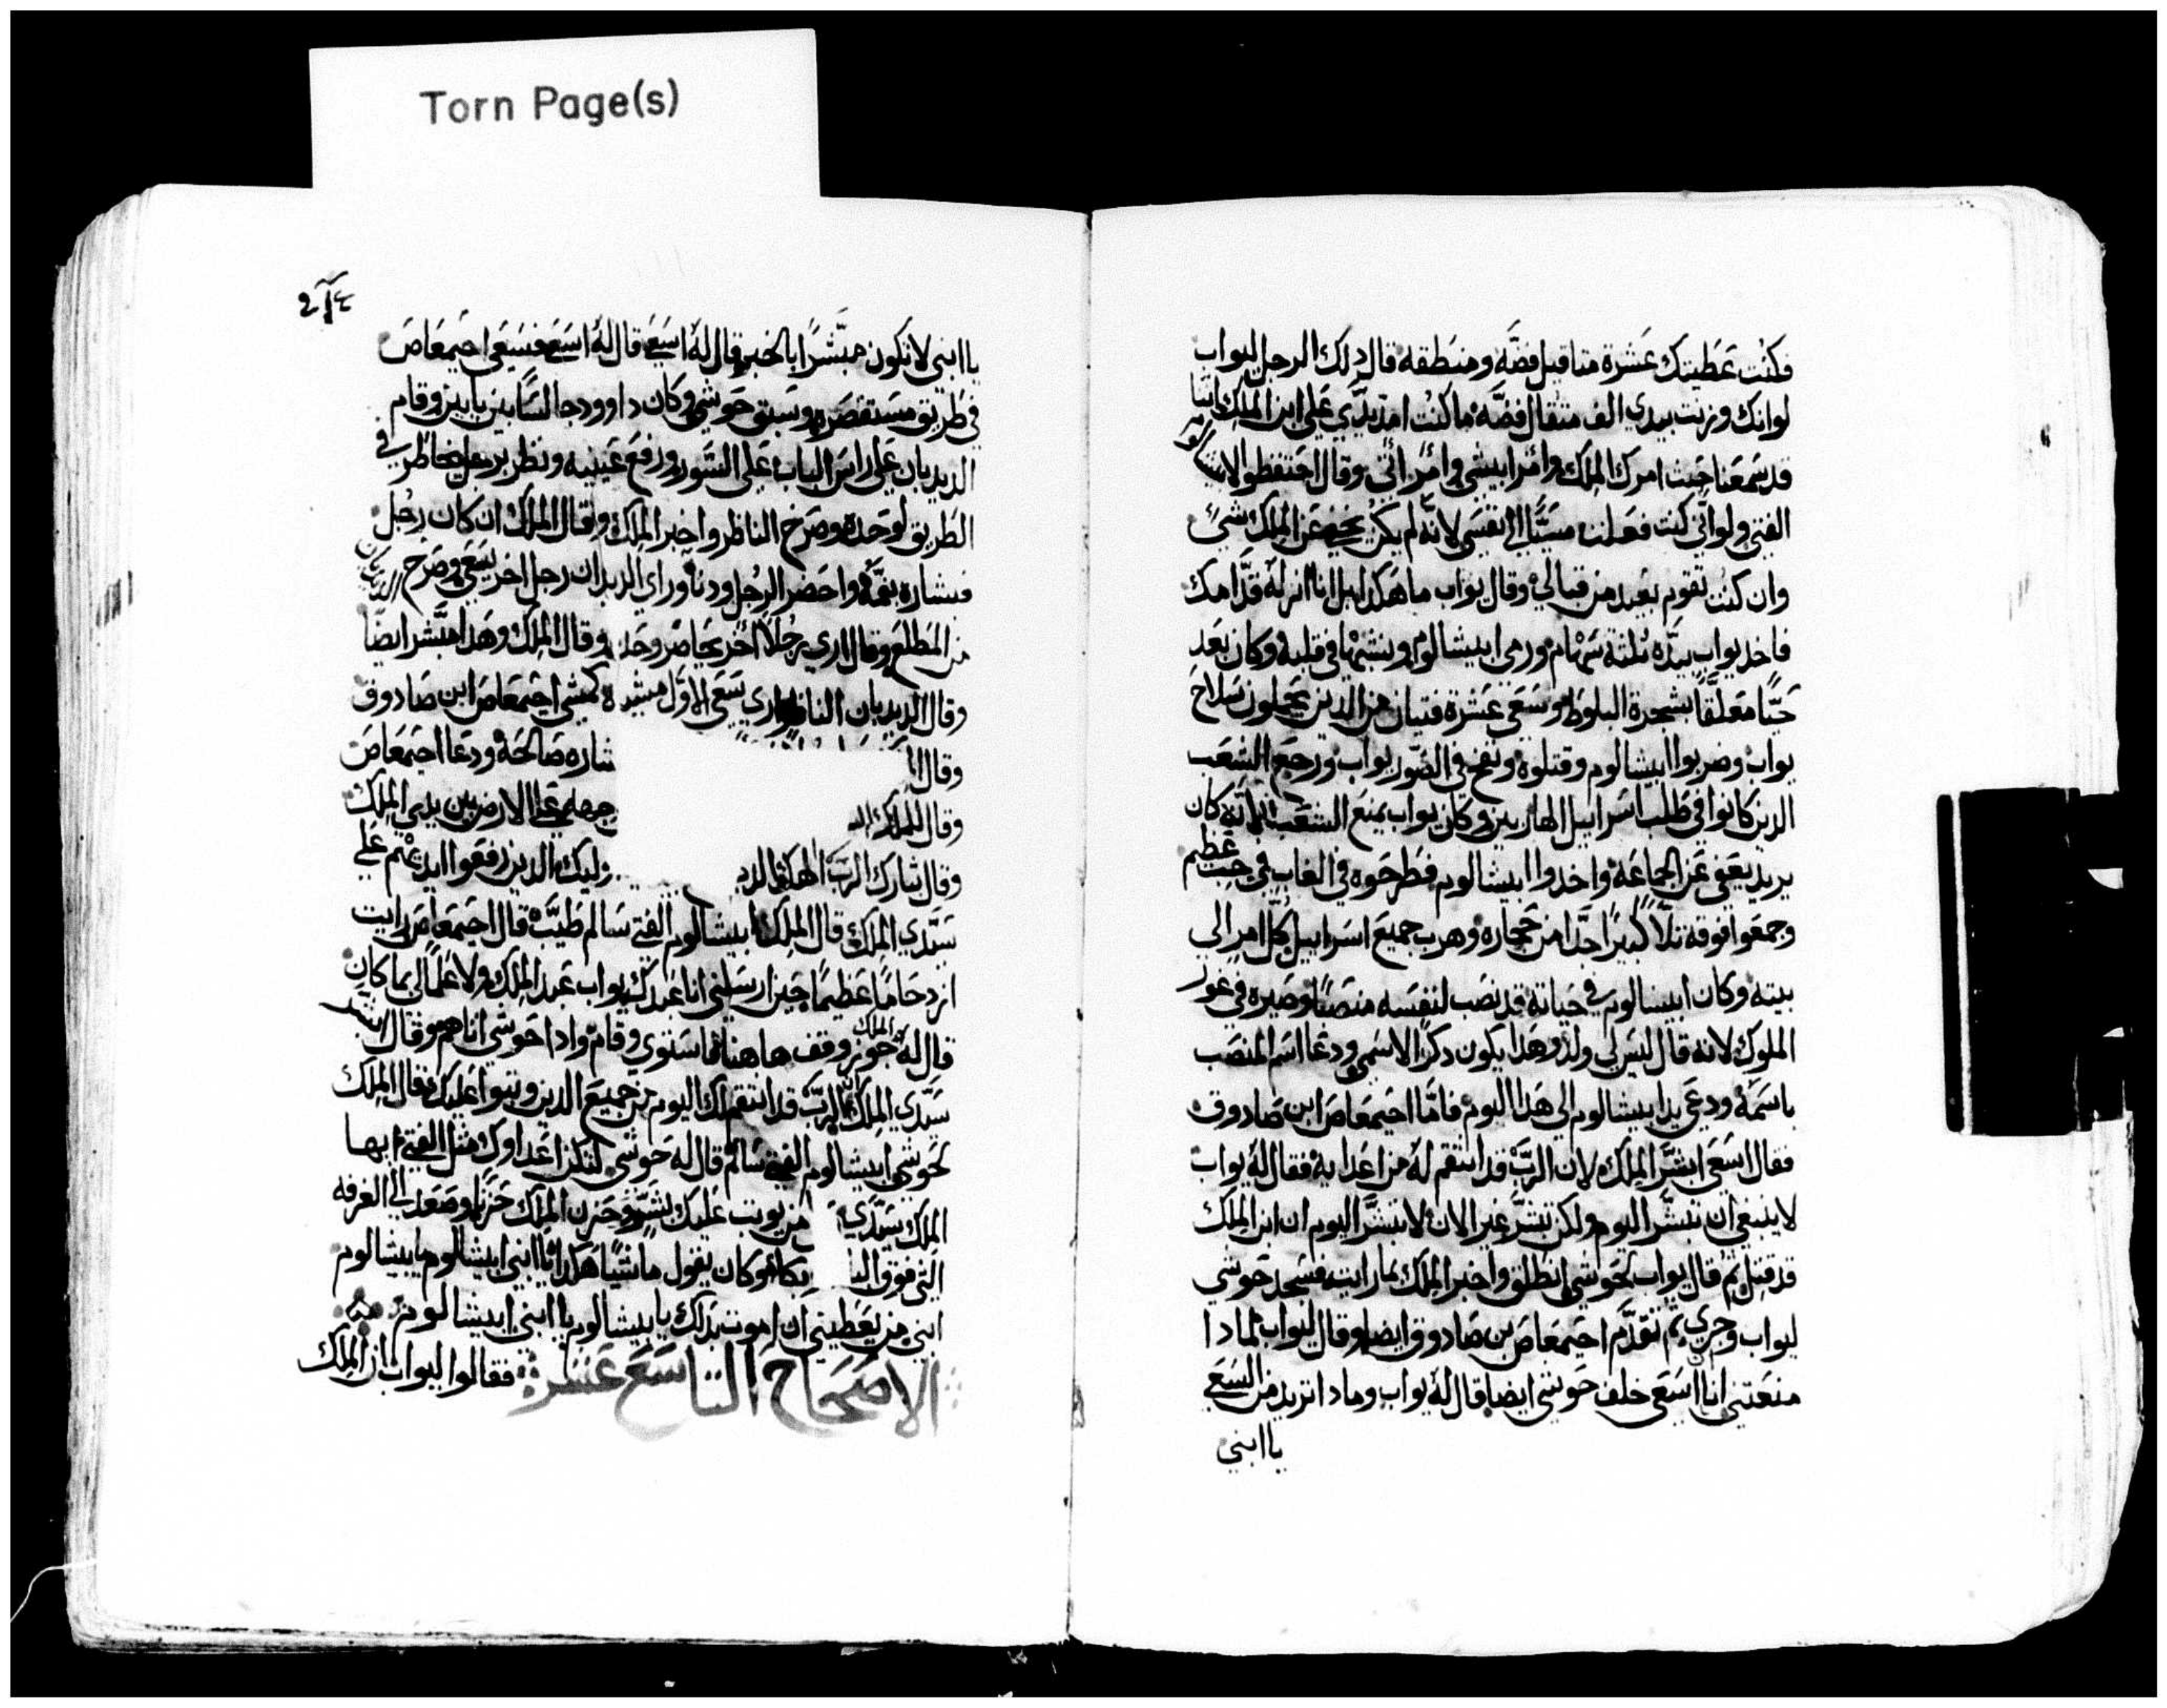 Torn Page(s)
فكنت عَطيتك عَشرة مثاقيل فضَّه ومنطقه قال دلك الرجل ليواب
لوانك وزنت بيدي الف مثقال فضَّه ما كنت امدّ يدّي عَلى ابن الملك اننا
قد سَمعنا حيث امرك الملك وامر ابيشي وامر اتي وقال احتفظوا لابيشالوم
الفتى ولو انّي كنت فعَلت مسَيًّا الى نفسَي لانّه لم يكن يخفى عَن الملك شيّ
وان كنت تقوم بعَيد من قبالي وقال يواب ما هَكدا بل انا انزله قدَّامك
فاخد يواب بيدّه تلتة سَهْام ورمى ابيشالوم ونشبهْا في قلبه وكان بعَد
حَيًّا معَلَّقًا بشجرة البلوط وسَعَى عَشرة فتيان من الدين يحَملون سَلاح
يواب وضربوا ابيشالوم وقتلوه ونفخ في الصّور يواب ورجع الشعَب
الدين كانوا في طلب اسَراييل الهاربين وكان يواب يمنع الشعَب لانّه كان
يريد يعَفي عَن الجماعَة واخدوا ابيشالوم فطرحَوه في الغاب في جب عَظيم
وجمعَوا فوقه تلًّا كبيرًا جدًّا من حجاره وهرب جميع اسَراييل كلّ امر الى
بيته وكان ابيشالوم في حَياته قد نصَب لنفسَه منصَبًا وصَيره في غور
الملوك لانه قال ليسَ لي ولد وهَدا يكون دكرًا لاسَمي ودعَا اسَم المنصَب
باسَمه ودعَي يد ابيشالوم الى هَدا اليوم فامّا احَيمعَاصَ ابن صَادوق
فقال اسَعَى ابشرّ الملك لان الربّ قد انتقم له من اعَدايه فقال له يواب
لا ينبغي ان تبشّر اليوم ولكن تبشّر غير الان لا تبشرّ اليوم ان ابن الملك
قد قتل ثم قال يواب لحَوشي انطلق واخبر الملك بما رايت فسَجد حَوشي
ليواب وجري ثم تقدَّم احَيمعَاصَ بن صَادوق ايضا وقال ليواب لمادا
منعَتني انا اسَعَى خلف حَوشي ايضا قال له يواب ومادا تريد من السَعَي
يا ابني
٢١٤
يا ابني لا تكون مبشّرًا بالخير قال له اسَعَى قال له اسَعَ فسَعَى احَيمعَاصَ
في طريق مسَتقصَره وسَبق حَوشي وكان داوود جالسًَا بين بابين وقام
الديدبان عَلى راسَ الباب عَلى السَّور ورفع عَينيه ونظر برجل خاطر في
الطريق لوحَده وصَرخ الناظر واخبر الملك وقال الملك ان كان رجُل
فبشاره بفمَّه واحَضر الرجُل ودنا وراى الديدبان رجل اخر يسَعَى وصَرخ الديدبان
من المطلَع وقال ارى رجُلًا اخر يحَاصَر وحَده وقال الملك وهَدا مبَّشر ايضًا
وقال الديدبان الناظر ارى سَعَى الاوّل كمشي احَيمعَاصَ ابن صَادوق
وقال ا شاره صَالحَة ودعَا احَيمعَاصَ
وقال للملك ال جهه عَلى الارض بين يدي الملك
وقال تبارك الربّ الهك الد وليك الدين رفعَوا ايديهْم عَلى
سَيّدي الملك قال الملك ابيشالوم الفتى سَالم طيّبٌ قال احَيمعَاصَ رايت
ازدحَامًا عَظيمًا حَين ارسَلني انا عَبدك يواب عَبد الملك ولا عَلم لي بما كان
قال له الملك جوز وقف هاهنا فاسَتوى وقام وادا حَوشي اتاهم وقال ابشر
سَيّدي الملك لان الربّ قد انتقم لك اليوم من جميع الدين وثبوا عَليك فقال الملك
لحَوشي ابيشالوم الفتى سَالم قال له حَوشي لتكن اعَداوك مثل الفتى ايها
الملك سَيّدي من يوبت عَليك بشرّ وحَزن الملك حَزنًا وصَعَد الى الغرفه
التي فوق البا بكاه وكان يقول ماشيًا هَكدا يا ابني ابيشالوم يا بيشالوم
ابني من يعَطيني ان اموت بدلك يا بيشالوم يا ابني ابيشالوم
الاصَحَاح التاسَع عَشر فقالوا ليواب ان الملك